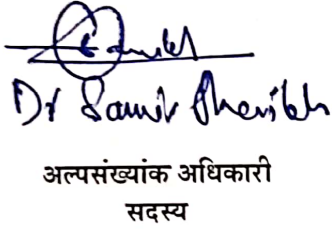 Dr Samir Sheikh
अल्पसंख्यांक अधिकारी
सदस्य